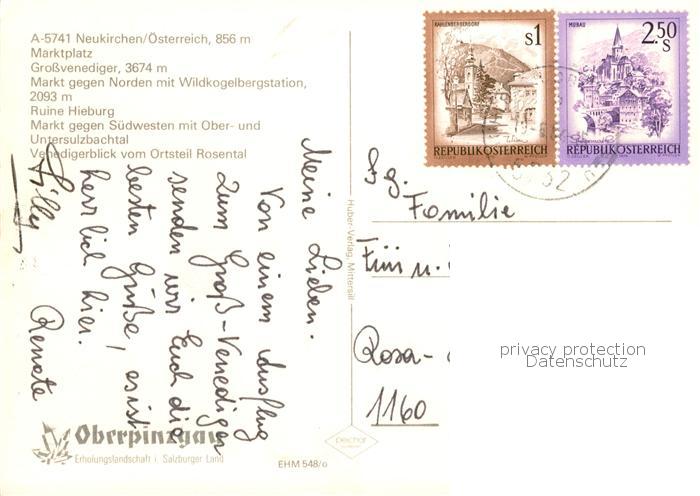 A-5741 Neukirchen/Österreich, 856 m
Marktplatz
Großvenediger, 3674 m
Markt gegen Norden mit Wildkogelbergstation,
2093 m
Ruine Hieburg
Markt gegen Südwesten mit Ober- und
Untersulzbachtal
Venedigerblick vom Ortsteil Rosental
Meine Lieben.
Von einem Ausflug
zum Groß-Venediger
senden wir Euch die
besten Grüße, es ist
herrlich hier.
Renate
Willy
Oberpinzgau
Erholungslandschaft i. Salzburger Land
EHM 548/o
Huber-Verlag, Mittersill
KAHLENBERGERDORF
s1
REPUBLIK ÖSTERREICH
MURAU
2.50
s
REPUBLIK ÖSTERREICH
Familie
u.
Rosa-
1160
privacy protection
Datenschutz